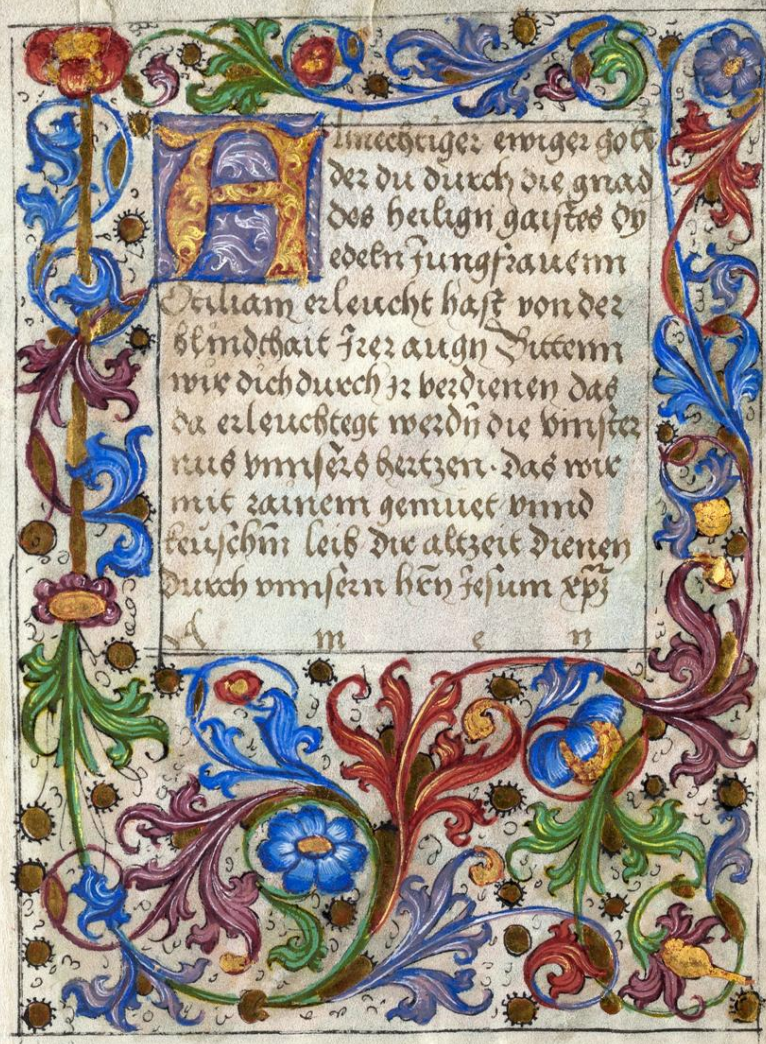 Almechtiger ewiger gott
der du durch die gnad
des heilign gaistes dy
edeln Jungfrauenn
Otiliam erleucht hast von der
blindthait Jrer augn Bittenn
wir dich durch Jr verdienen das
da erleuchtegt werdn̄ die vinster
nus vnnsers hertzen · das wir
mit rainem gemuet vnnd
keuschm̄ leib dir altzeit dienen
durch vnnsern hr̄n Jesum xp̄ꝫ
A m e n